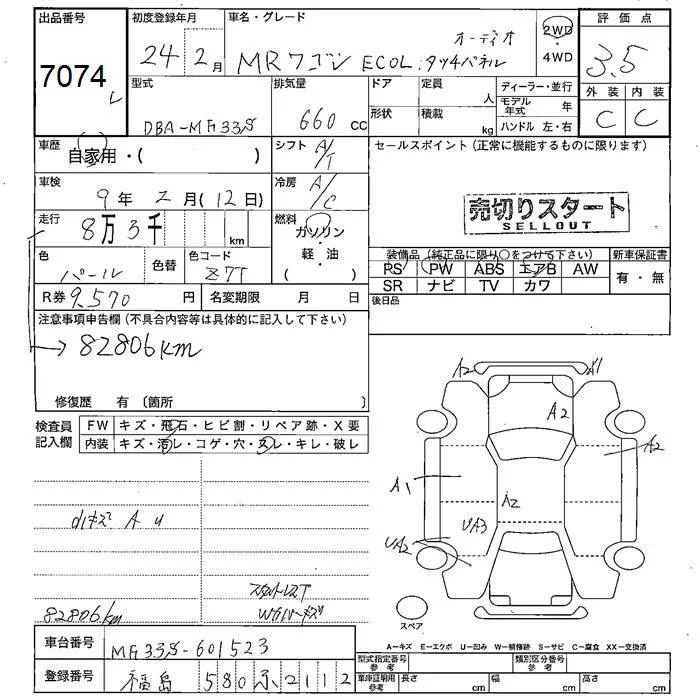 出品番号 7074 レ
初度登録年月 24年 2月
車名・グレード MRワゴン ECOL. タッチパネル オーディオ
2WD ・ 4WD
評価点 3.5
外装 内装
C C
型式 DBA-MF33S
排気量 660 cc
ドア 定員 人
形状 積載 kg
ディーラー・並行
モデル年式 年
ハンドル 左・右
車歴 自家用・( )
シフト A/T
セールスポイント (正常に機能するものに限ります)
車検 9年 2月(12日)
冷房 A/C
売切りスタート
SELLOUT
走行 8万 3千 km
燃料 ガソリン・軽・油 ( )
色 パール 色替 色コード Z7T
装備品 (純正品に限り〇をつけて下さい) 新車保証書
PS PW ABS エアB AW 有・無
SR ナビ TV カワ
R券 9,570 円 名変期限 月 日
後日品
注意事項申告欄 (不具合内容等は具体的に記入して下さい)
→ 82806km
修復歴 有 〔箇所 〕
検査員記入欄 FW キズ・飛石・ヒビ割・リペア跡・X要
内装 キズ・汚レ・コゲ・穴・スレ・キレ・破レ
A2 A1
A2
A2
A1
A2
UA3
UA2
スペア
A u
82806km
車台番号 MF33S-601523
登録番号 福島 580 2112
A-キズ E-エクボ U-凹み W-補修跡 S-サビ C-腐食 XX-交換済
型式指定番号 参考 類別区分番号 参考
車庫証明用 参考 長さ cm 幅 cm 高さ cm